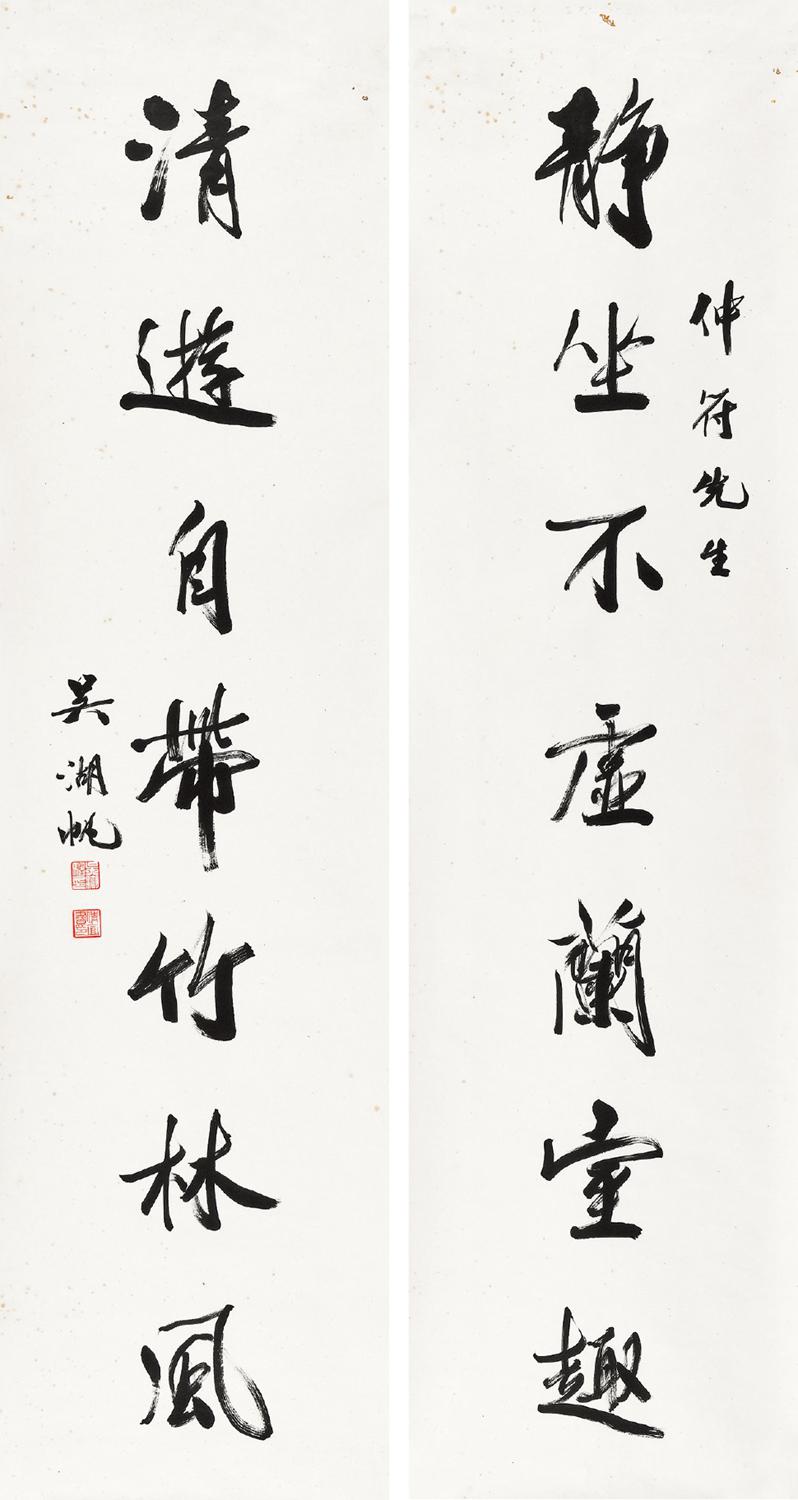 仲符先生
静坐不虛蘭室趣
清遊自帶竹林風
吳湖帆